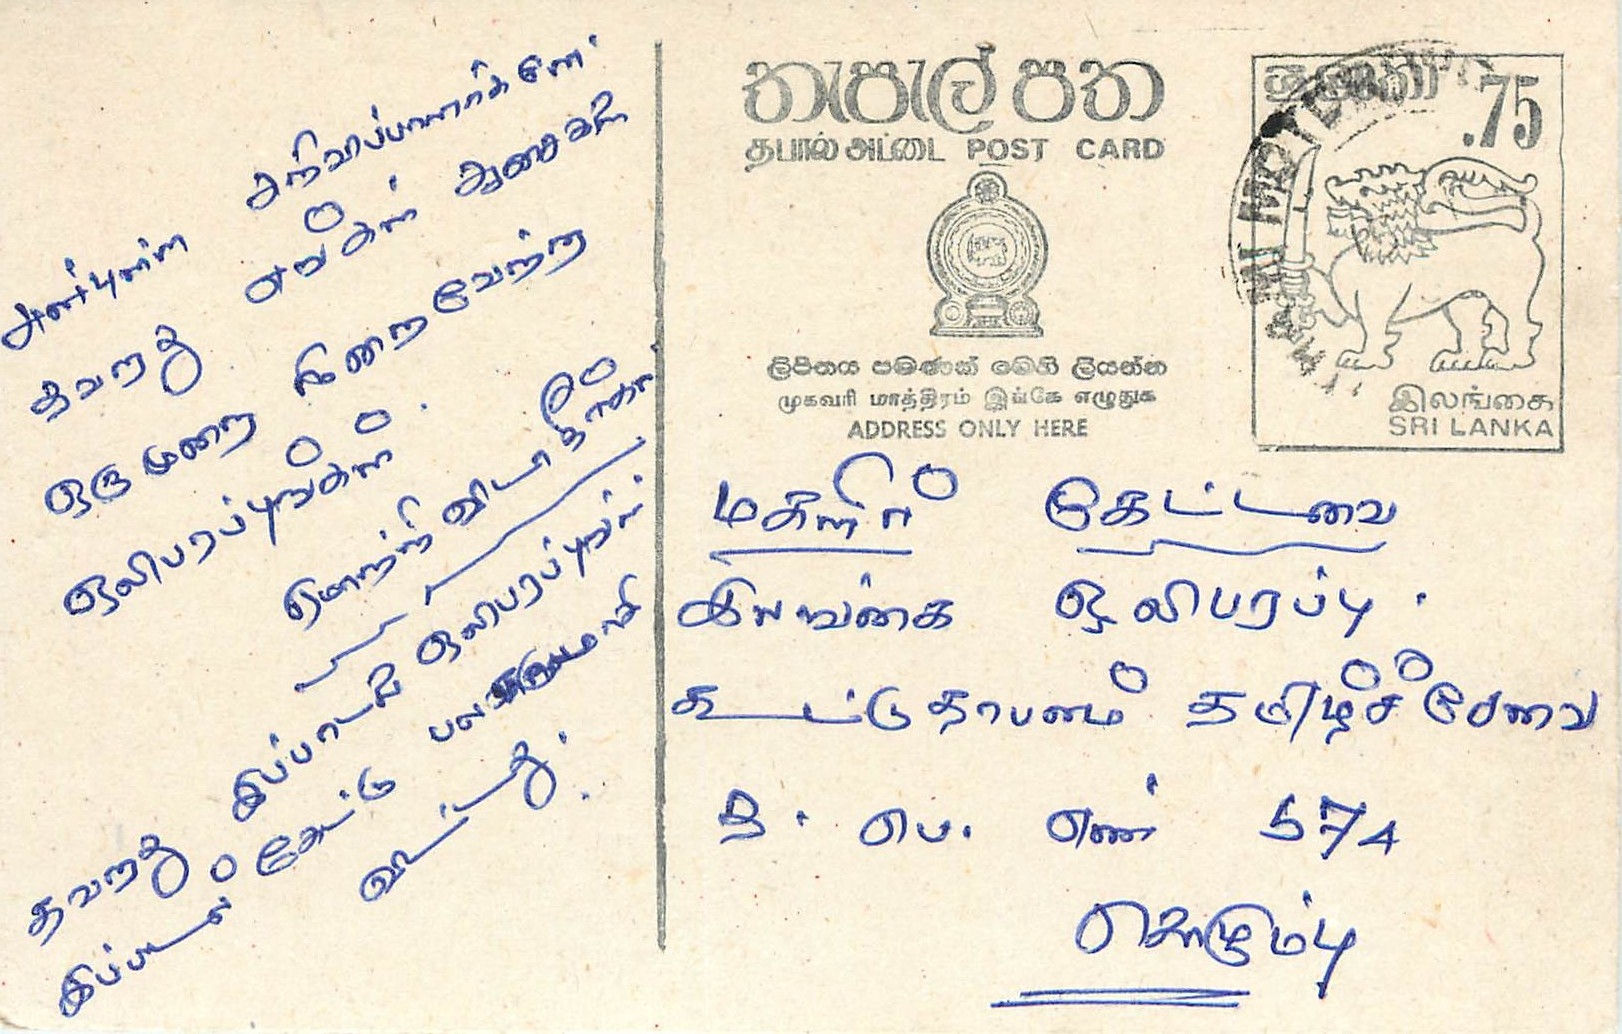 අன்புள்ள அறிவிப்பாளர்களே
தவறாது எங்கள் ஆசைகள்
ஒருமுறை நிறைவேற்ற
ஒலிபரப்புங்கள்.
ஏமாற்றி விடாதீர்கள்
தவறாது இப்பாடல் ஒலிபரப்புங்கள்
இப்பாடல் கேட்டு பல
விட்டது.
තැපැල් පත
தபால் அட்டை POST CARD
ලිපිනය පමණක් මෙහි ලියන්න
முகவரி மாத்திரம் இங்கே எழுதுக
ADDRESS ONLY HERE
ශ්‍රී ලංකා .75
இலங்கை
SRI LANKA
மகளிர் கேட்டவை
இலங்கை ஒலிபரப்பு.
கூட்டுதாபனம் தமிழ்ச் சேவை
த. பெ. எண் 574
கொழும்பு